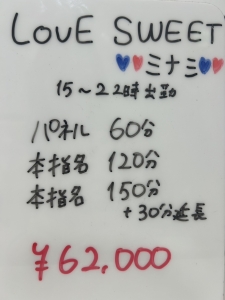 LOVE SWEET
♥♥ミナミ♥♥
15～22時出勤
パネル 60分
本指名 120分
本指名 150分
+30分延長
¥62,000